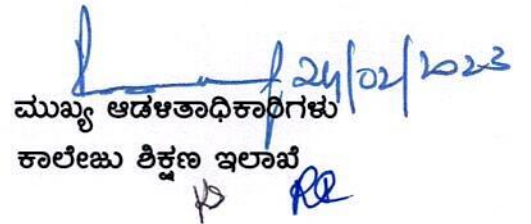 24/02/2023
ಮುಖ್ಯ ಆಡಳಿತಾಧಿಕಾರಿಗಳು
ಕಾಲೇಜು ಶಿಕ್ಷಣ ಇಲಾಖೆ